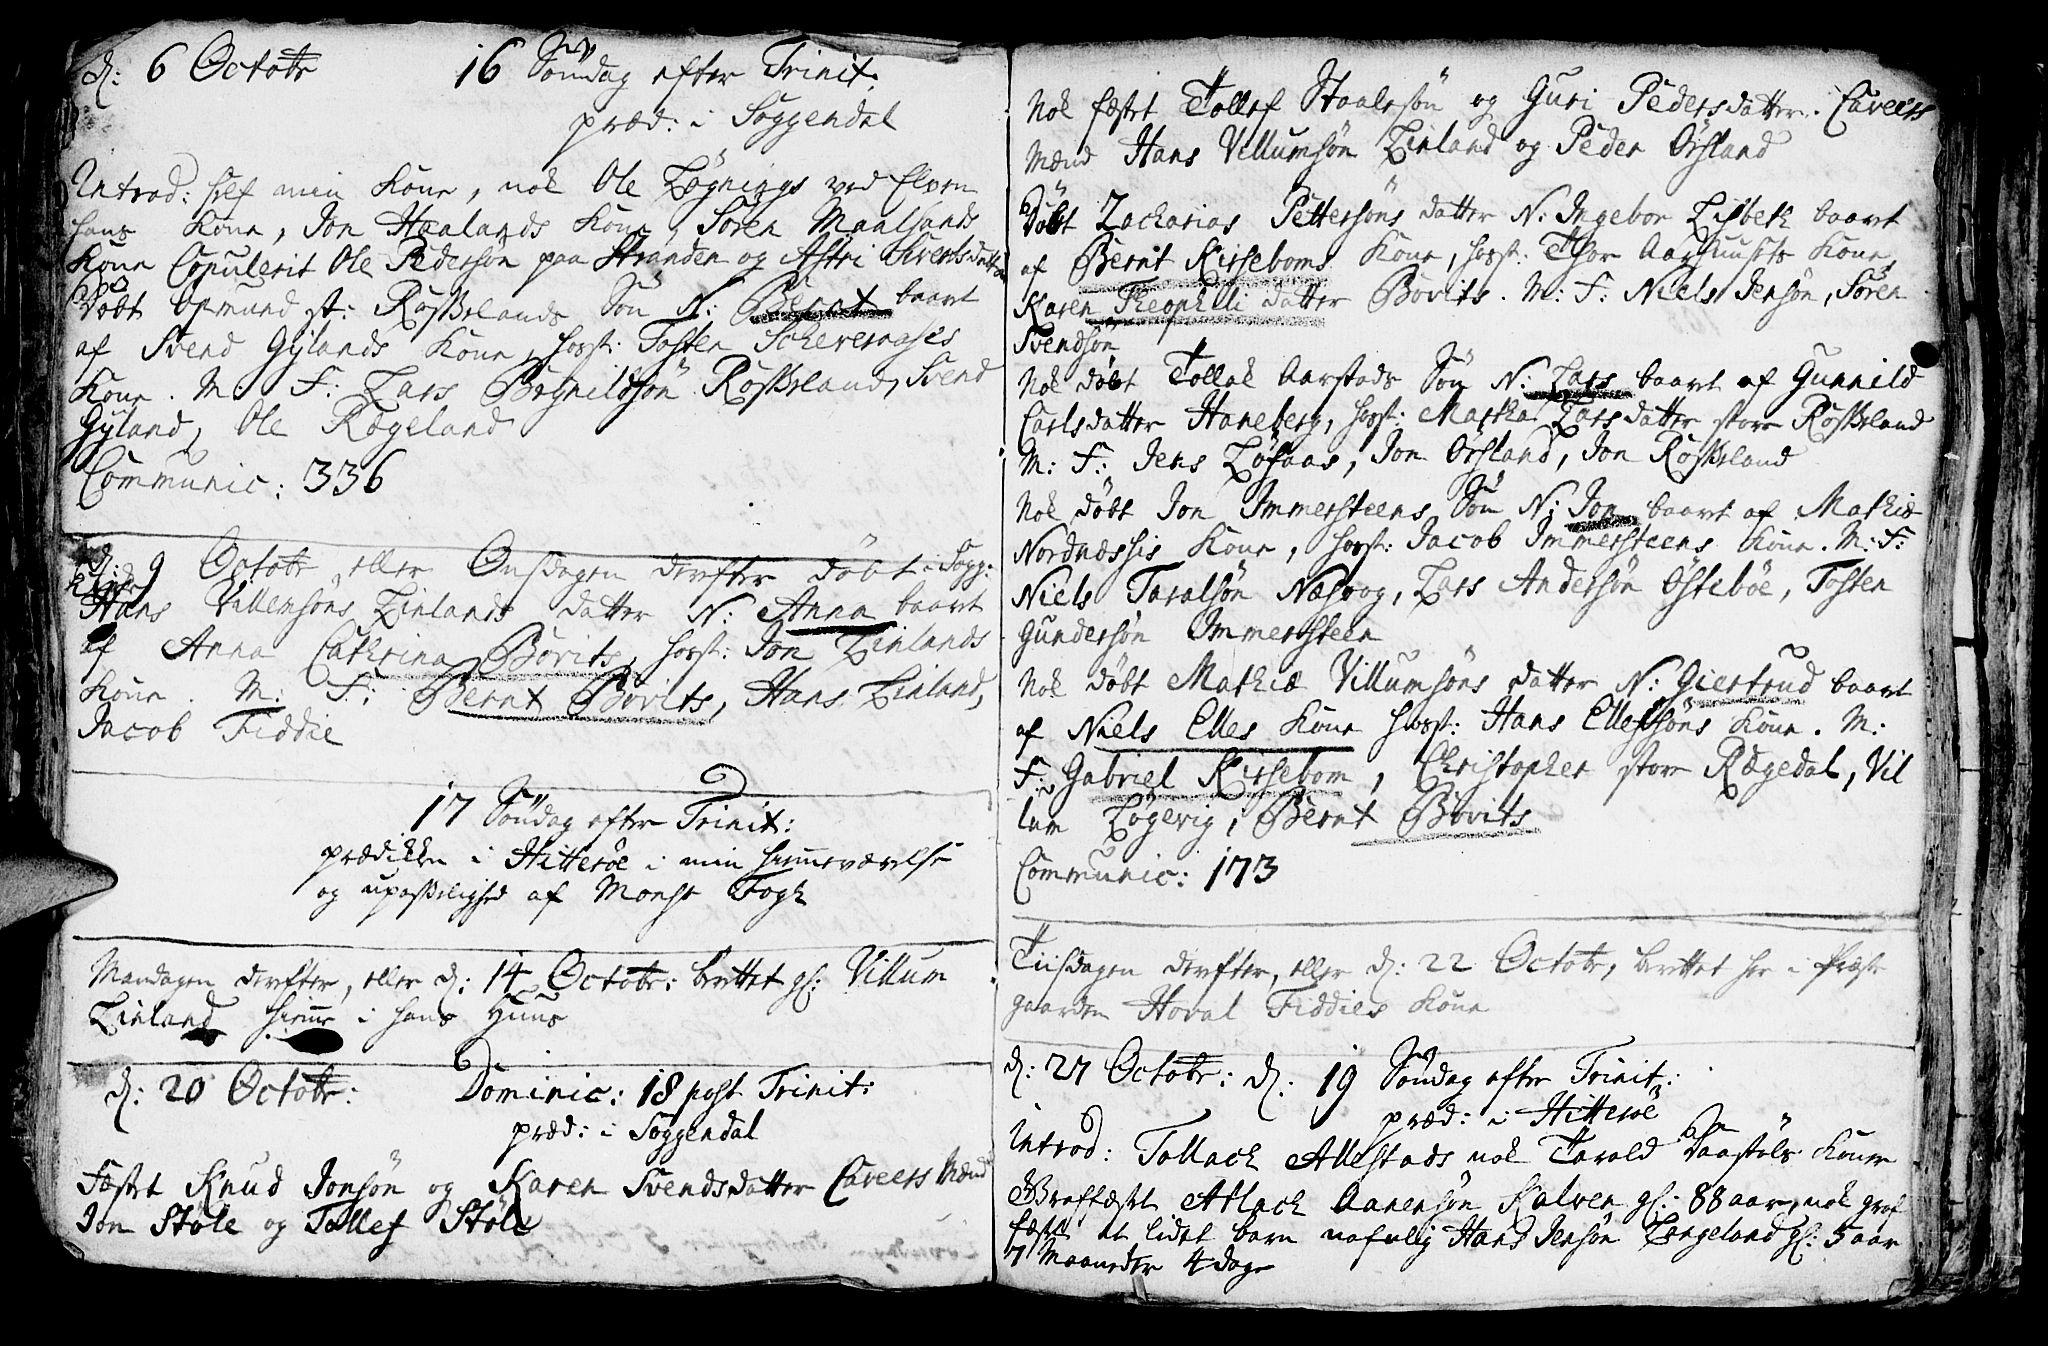 d: 6 Octobr 16 Søndag efter Trinit:
præd: i Soggendal
Introd: self min Kone, nok Ole Lognings ved Elven
hans Kone, Jon Haalands Kone, Sören Maalsands
Kone Copulerit Ole Pedersön paa Stranden og Astri Siverts datter
Döbt Osmund st: Röszlands Sön N: Bernt baart
af Svend Gylands Kone, host: Tosten
Kone. M. F: Lars Röszland, Svend
Gyland, Ole Rægeland
Communic: 336
d: 9 Octobr eller Onsdagen derefter döbt i Sogg:
Hans Villumsöns Linlands datter N: Anna baaret
af Anna Cathrina Bovits, host: Jon Linlands
Kone. M: F: Bernt Bovits, Hans Linland,
Jacob Fiddie
17 Søndag efter Trinit:
prædikken i Hitteröe i min
og upaszelighed af Monsr Fogh
Mandagen derefter, eller d: 14 Octobr: berettet gl: Villum
Linland hiemme i hans Huus
d: 20 Octobr: Dominic: 18 post Trinit:
præd: i Soggendal
Fæstet Knud Jonsön og Karen Svends datter Caveers Mænd
Jon Stöle og Tollef Stöle
Nok fæstet Tollef Staalesön og Guri Peders datter. Caveers
Mænd Hans Villumsön Linland og Peder Örsland
Döbt Zacharias Pettersöns datter N: Ingebor Lisbeth baart
af Bernt Kirseboms Kone, host: Thor Kone,
Karen Theophili datter Bovits. M: F: Niels Jensön, Sören
Svendsön
Nok döbt Tollak Aarstads Sön N: Lars baart af Gunnild
Carlsdatter Haneberg, host: Martha Larsdatter store Röszland
M: F: Jens Löfaas, Jon Örsland, Jon Röszland
Nok döbt Jon Immersteens Sön N: Jon baart af Mathiæ
Nordnæssis Kone, host: Jacob Immersteens Kone. M: F:
Niels Taralsön Næsvog, Lars Andersön Östeböe, Tosten
Gundersön Immersteen
Nok döbt Mathiæ Villumsöns datter N: Giertrud baart
af Niels Elles Kone host: Hans Ellefsöns Kone. M:
F: Gabriel Kirsebom, Christopher store Rægedal, Vil
lum Lögevig, Bernt Bovits
Communic: 173
Tiisdagen derefter, eller d: 22 Octobr, berettet her i Præste
gaarden Hoval Fiddies Kone
d: 27 Octobr: d. 19 Søndag efter Trinit:
præd: i Hitteröe
Introd: Tollach Allestads nok Tarald Kone
Grafkastet Atlach Aanensön Kalven gl: 88 aar, nok graf
kastet et lidet barn nafnlig Hans Jensön Longeland gl: 5 aar
7 Maaneder 4 dage